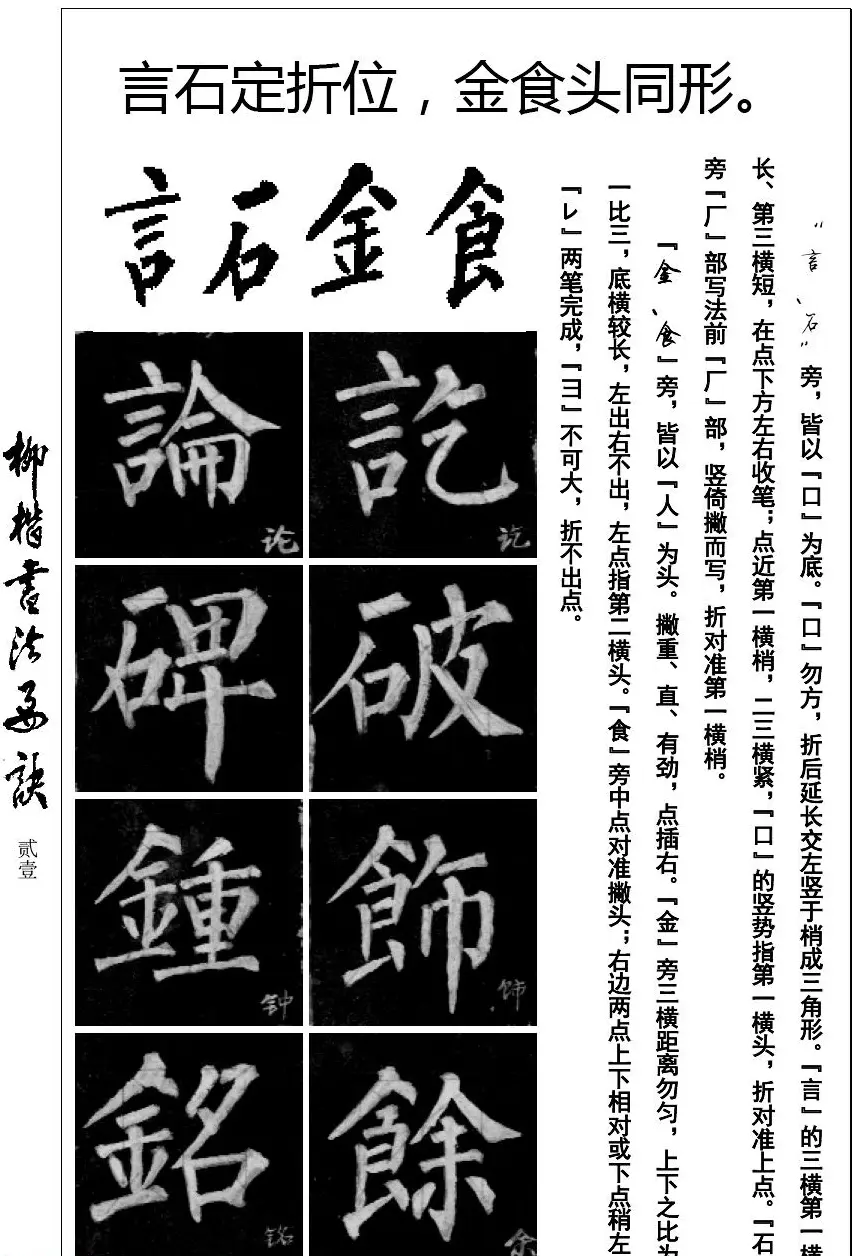 言石定折位，金食头同形。
言石金食
論 论
訖 讫
碑
破
鍾 钟
飾 饰
銘 铭
餘 余
“言、石”旁，皆以『口』为底。『口』勿方，折后延长交左竖于梢成三角形。『言』的三横第一横
长、第三横短，在点下方左右收笔；点近第一横梢，二三横紧，『口』的竖势指第一横头，折对准上点。『石
旁『厂』部写法前『厂』部，竖倚撇而写，折对准第一横梢。
『金、食』旁，皆以『人』为头。撇重、直、有劲，点插右。『金』旁三横距离勿匀，上下之比为
一比三，底横较长，左出右不出，左点指第二横头。『食』旁中点对准撇头；右边两点上下相对或下点稍左
『レ』两笔完成，『彐』不可大，折不出点。
柳楷书法要诀
贰壹